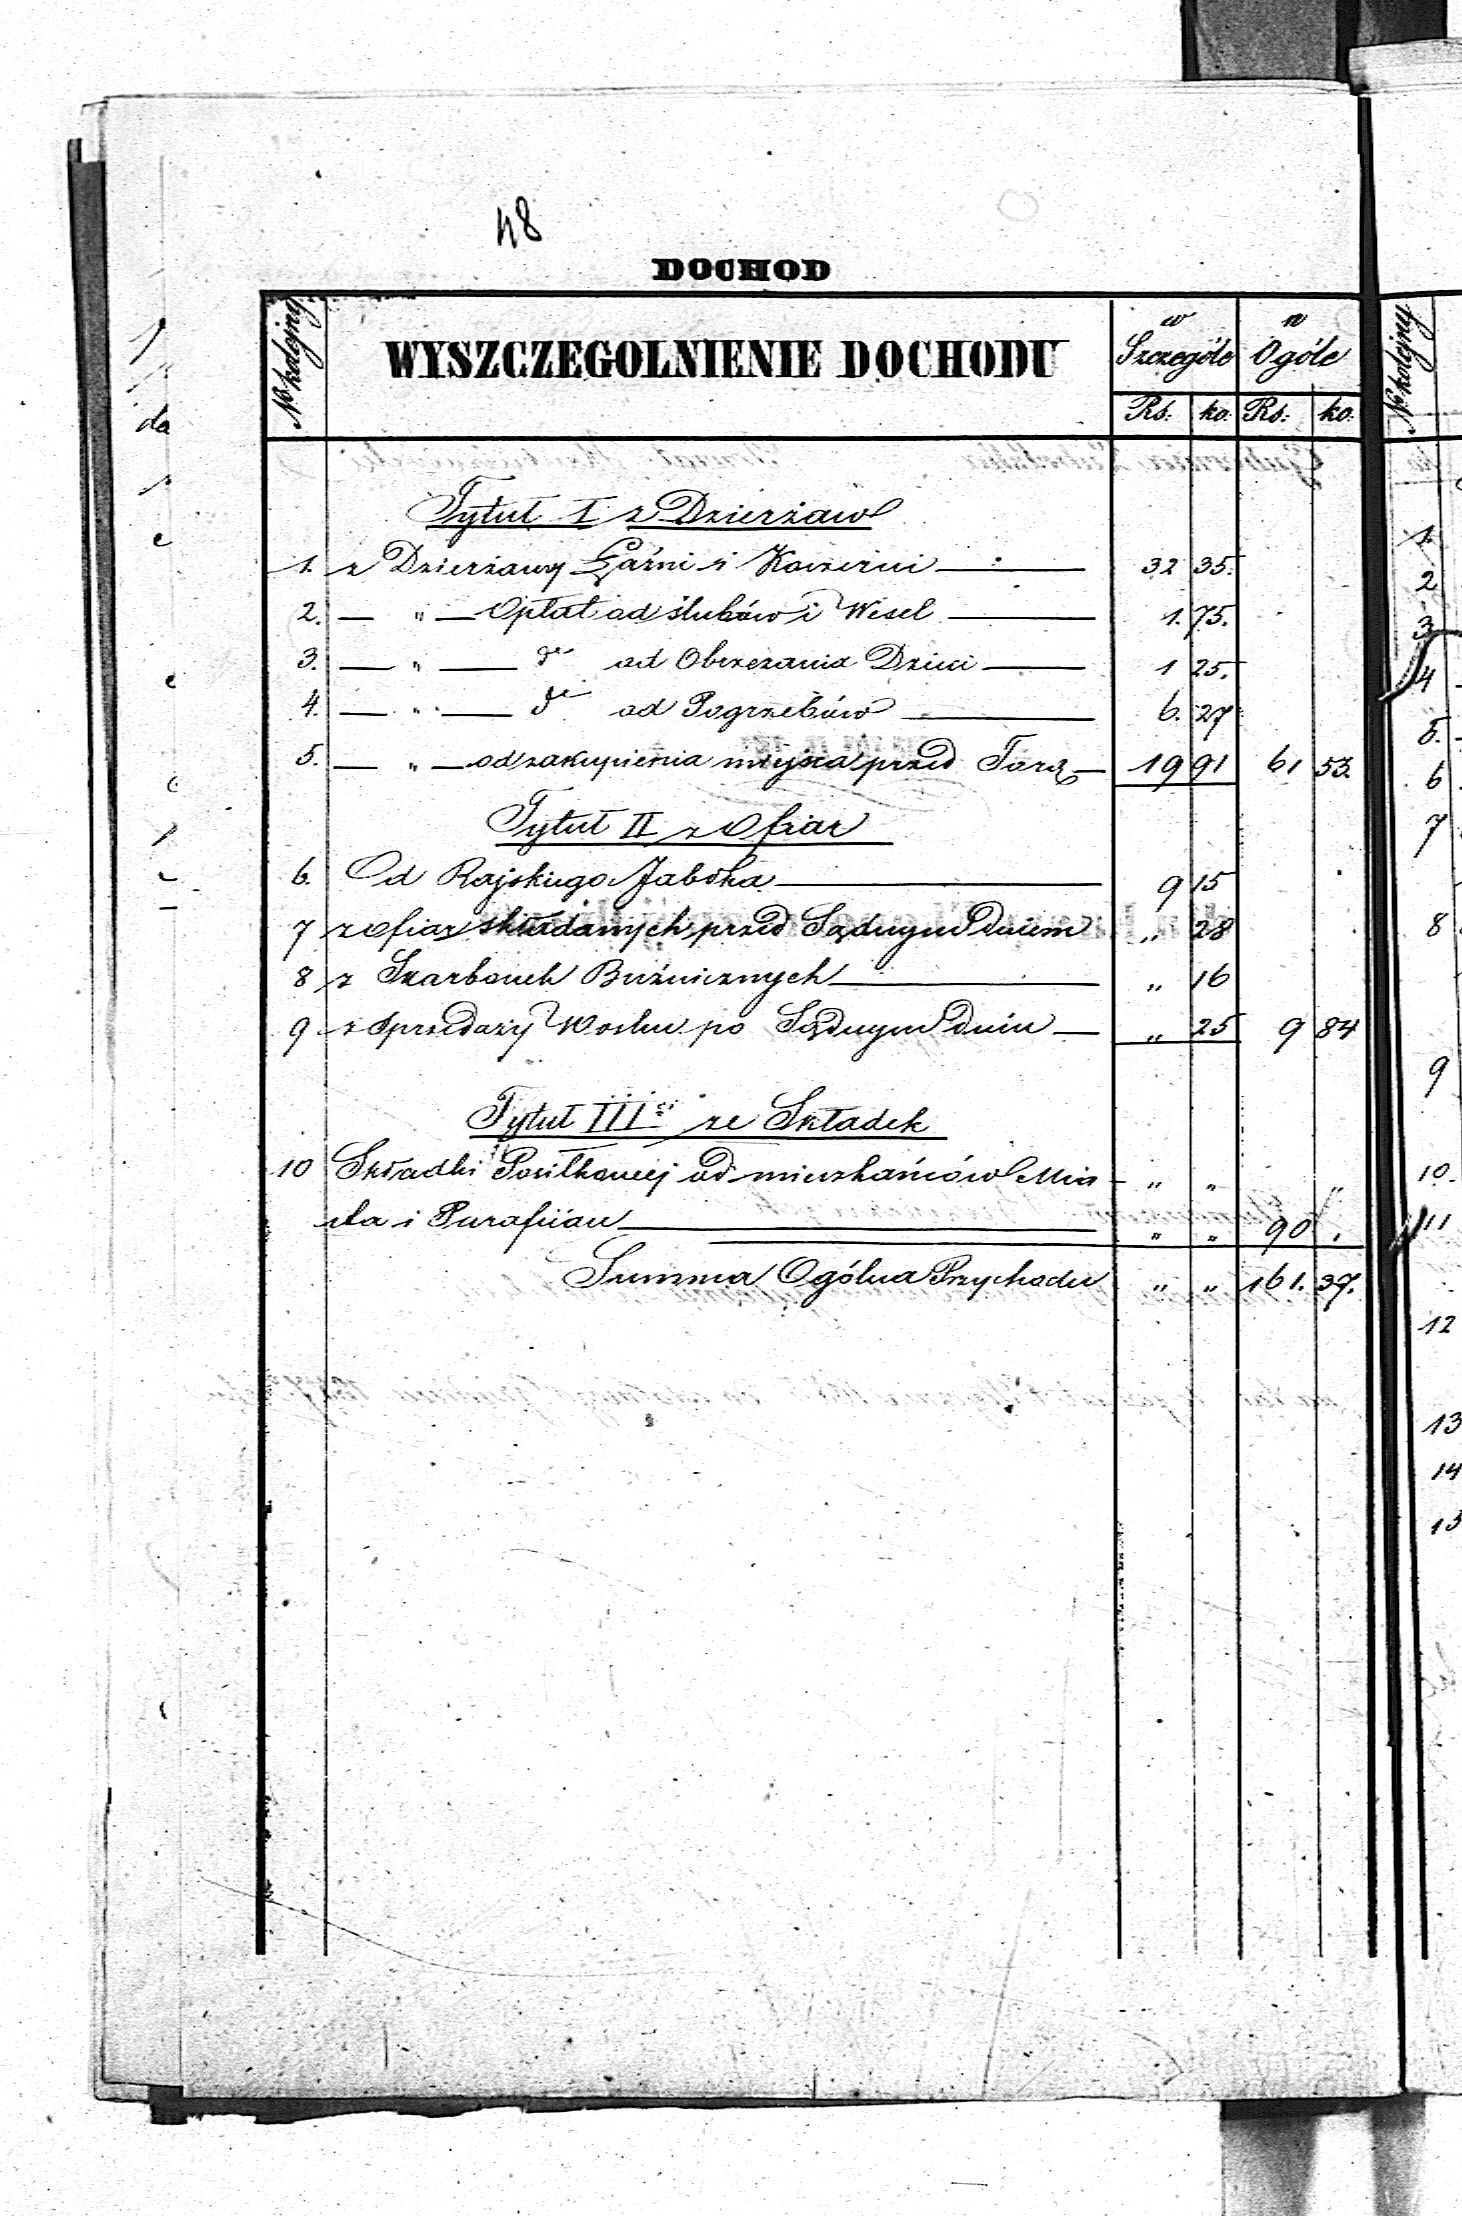 48
DOCHOD
No kolejny
WYSZCZEGOLNIENIE DOCHODU
w Szczególe
w Ogóle
Rs. ko. Rs. ko.
Tytuł I z Dzierżaw
1. z Dzierżawy Łaźni i 32 35.
2. — „ — Opłat od ślubów i Wesel — 1. 75.
3. — „ — do od Obrzezania Dzieci — 1 25.
4. — „ — do od Pogrzebów — 6. 27
5. — „ — od zakupienia miejsca przed Torą — 19 91 61 53.
Tytuł II z Ofiar
6. Od Rajskiego Jabłka — 9 15
7 z ofiar składanych przed Sądnym dniem „ 28
8 z Skarbonek Bóżnicznych — „ 16
9 z Sprzedaży Wosku po Sądnym dniu — „ 25 9 84
Tytuł III ze Składek
10 Składki Posiłkowej od mieszkańców Mia „ „ „
sta i Parafian — „ „ 90 .
Summa Ogólna Przychodu „ „ 161. 37.
No kolejny
1.
2
3
4
5.
6
7
8
9
10.
11
12
13
14
15
da